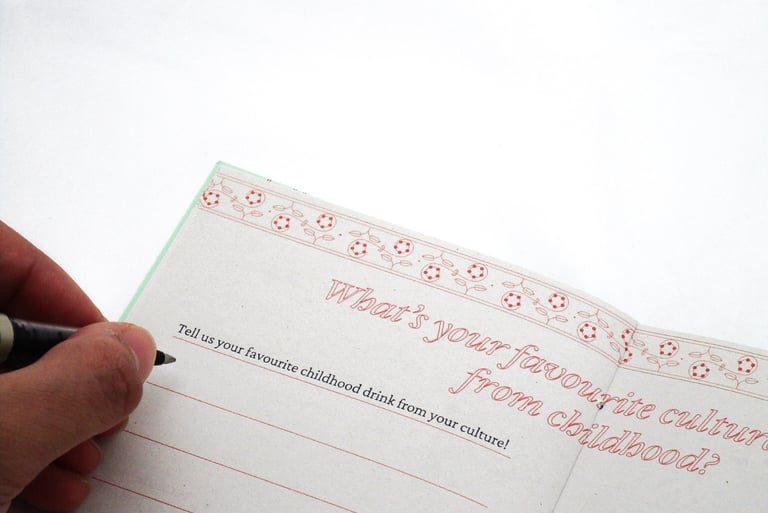 What's your favourite
from childhood?
Tell us your favourite childhood drink from your culture!